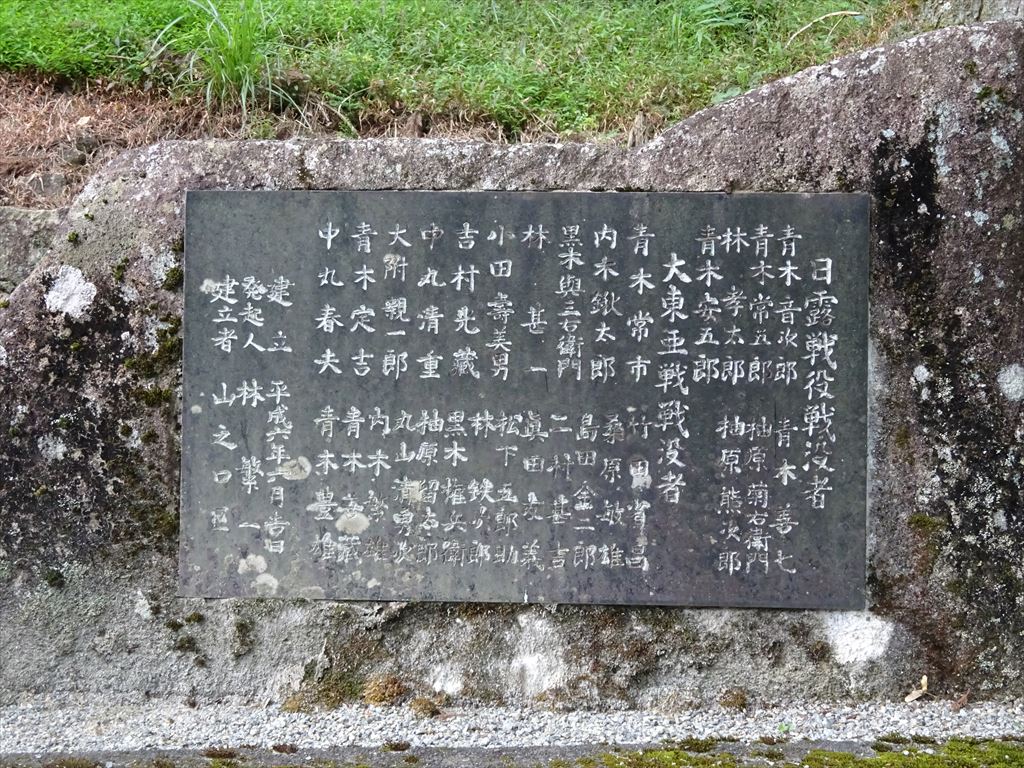 日露戦役戦没者
青木音次郎 青木善七
青木常五郎 柚原菊右衛門
林 孝太郎 柚原熊次郎
青木安五郎
大東亜戦戦没者
青木常市 竹田省昌
内木鍬太郎 桑原敏雄
黒木與三右衛門 島田金二郎
林 甚一 二村甚吉
小田壽美男 眞田 義
吉村晃蔵 松下五郎助
中丸清重 林 鉄 郎
大附親一郎 黒木権兵衛
青木定吉 柚原留右 郎
中丸春夫 丸山清 次
内木 雄
青木 蔵
青木豊雄
建立 平成六年六月吉日
発起人 林 繁一
建立者 山之口区